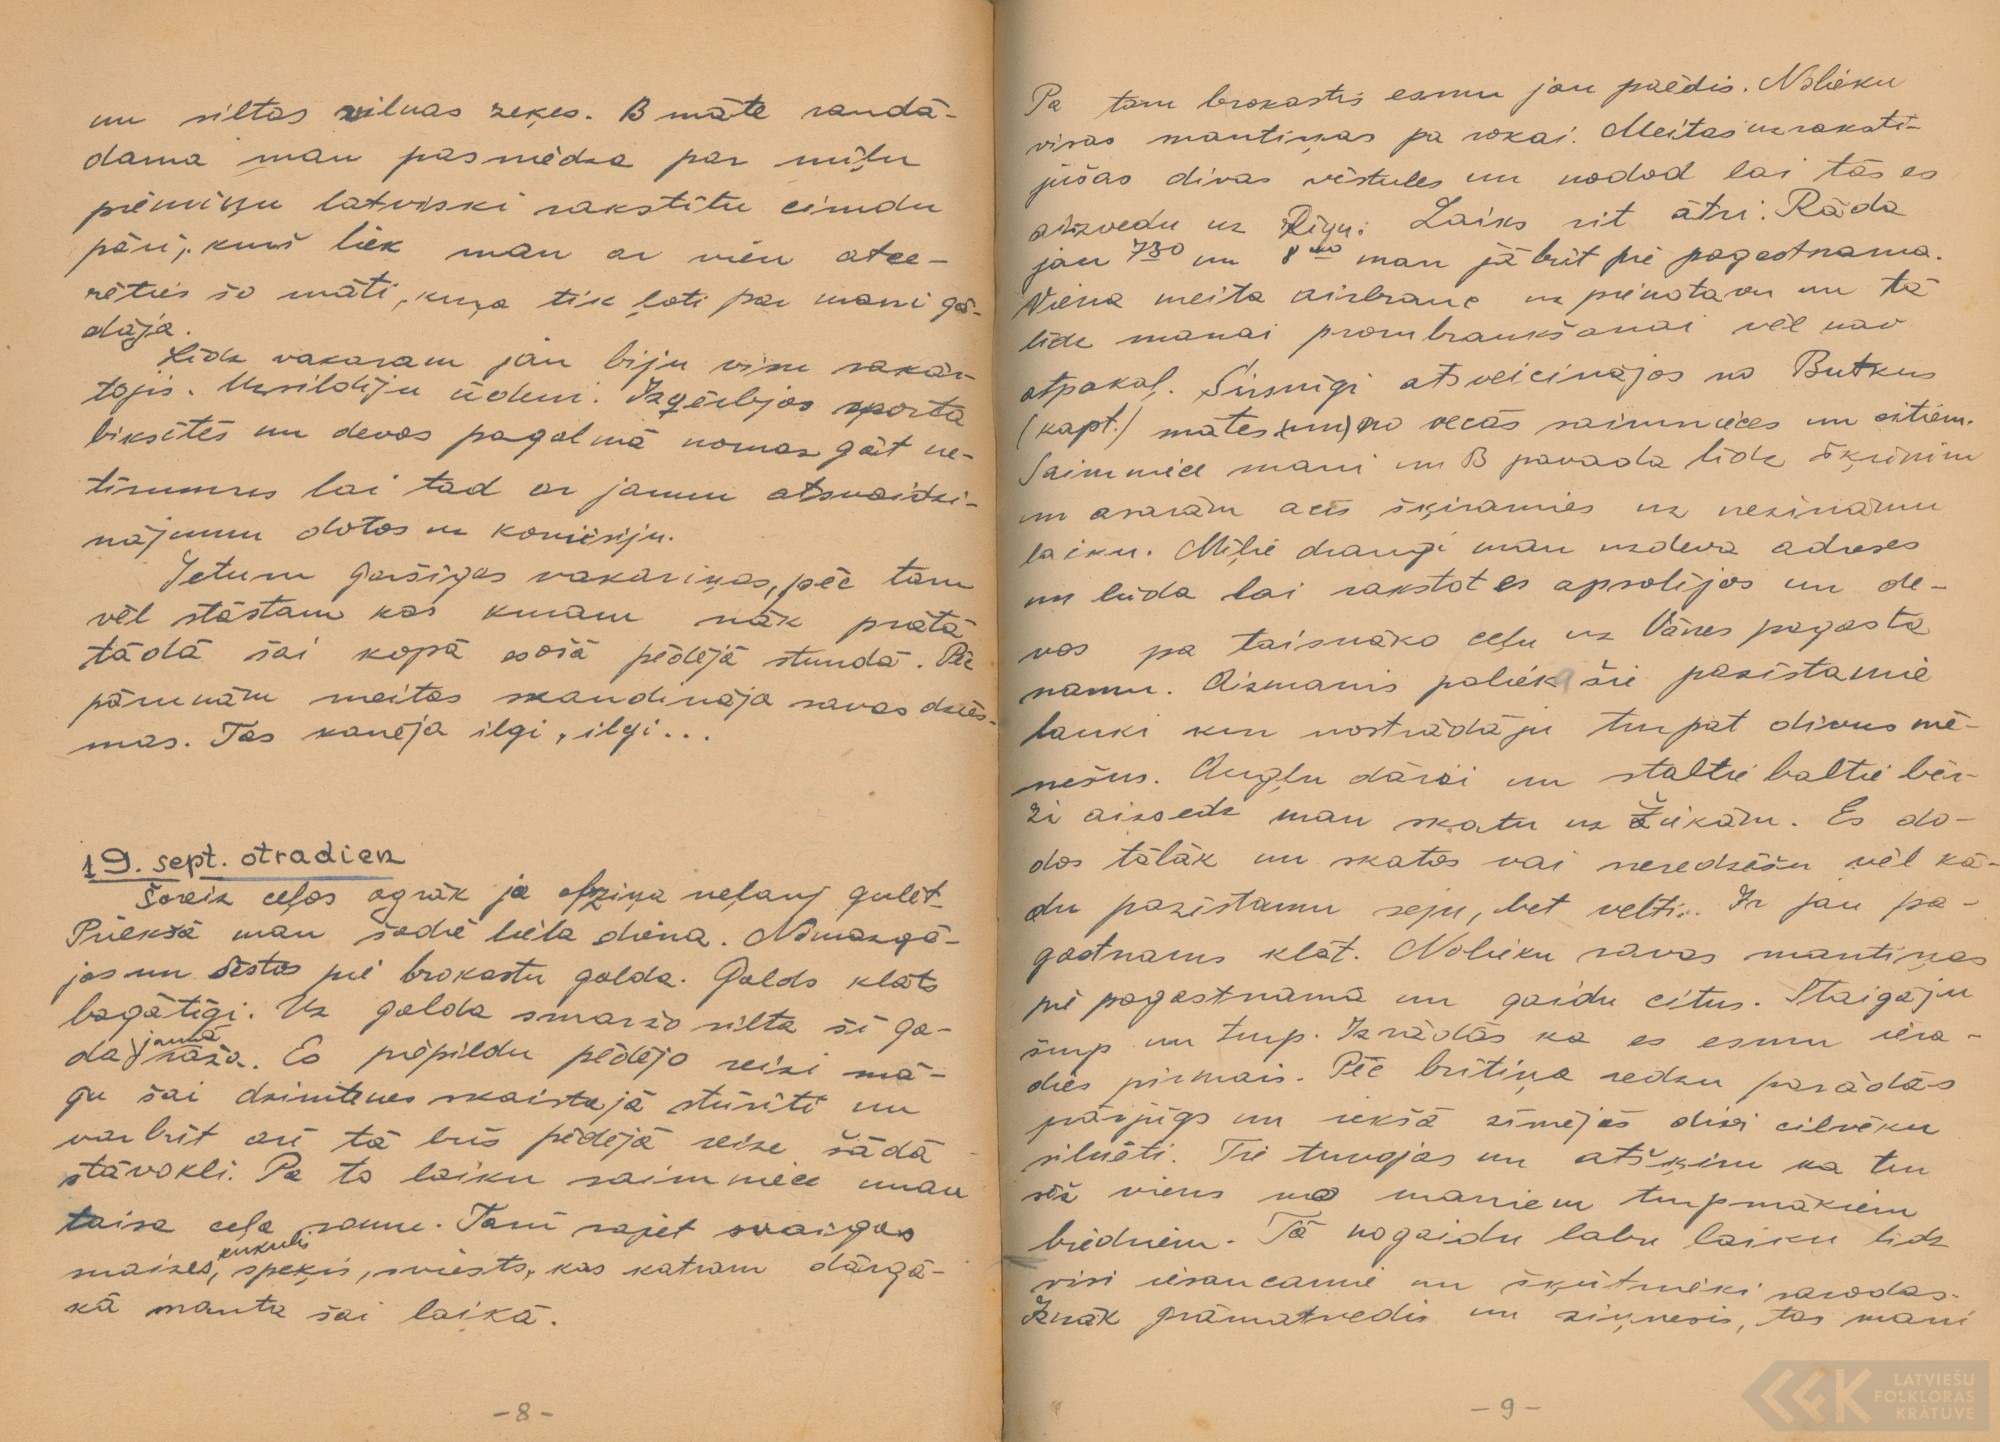 un siltas vilnas zeķes. B māte raudā-
dama man pasniedza par mīļu
piemiņu latviski rakstītu cimdu
pāri, kurš liek man ar vien atce-
rēties šo māti, kuŗa tik ļoti par mani gā-
dāja.
Līdz vakaram jau biju visu sakār-
tojis. Uzsildīju ūdeni. Izģērbjos sporta
biksītēs un devos pagalmā nomazgāt ne-
tīrumus lai tad ar jaunu atsvaidzi-
nājumu dotos uz komisiju.
Ieturu garšīgas vakariņas, pēc tam
vēl stāstam kas kuram nāk prātā
tādā šai kopā esošā pēdējā stundā. Pēc
pārunām meitas skandināja savas dzies-
mas. Tas skanēja ilgi, ilgi...
19. sept. otradien
Šoreiz ceļos agrāk jo apziņa neļauj gulēt.
Priekšā man šodie liela diena. Nomazgā-
jos un sēstos pie brokastu galda. Galds klāts
bagātīgi. Uz galda smaržo silta šī ga-
da jaunā raža. Es piepildu pēdējo reizi mā-
gu šai dzimtenes skaistajā stūrītī un
varbūt arī tā būs pēdējā reize šādā
stāvoklī. Pa to laiku saimniece man
taisa ceļa somu. Tanī sajet svaigas
maizes, kukuli, speķis, sviests, kas katram dārgā-
kā manta šai laikā.
-8-
Pa tam brokastis esmu jau paēdis. Nolieku
visas mantiņas pa rokai. Meitas uzraksti-
jušas divas vēstules un nodod lai tās es
aizvedu uz Rīgu. Laiks rit ātri. Rāda
jau 7³⁰ un 8⁰⁰ man jābūt pie pagastnama.
Viena meita aizbrauc uz pienotavu un tā
līdz manai prombraukšanai vēl nav
atpakaļ. Sirsnīgi atsveicinājos no Butkus
(kapt.) mātes (un) no vecās saimnieces un citiem.
Saimniece mani un B pavada līdz šķūnim
un asarām acīs šķiramies uz nezināmu
laiku. Mīļie draugi man uzdeva adreses
un lūdza lai rakstot es apsolījos un de-
vos pa taisnāko ceļu uz Vānes pagasta
namu. Aizmanis paliek šie pazīstamie
lauki kur nostrādāju turpat divus mē-
nešus. Augļu dārzi un staltie baltie bēr-
zi aizsedz man skatu uz Žūkām. Es do-
dos tālāk un skatos vai neredzēšu vēl kā-
du pazīstamu seju, bet velti. Ir jau pa-
gastnams klāt. Nolieku savas mantiņas
pie pagastnama un gaidu citus. Staigāju
šurp un turp. Izrādās ka es esmu iera-
dies pirmais. Pēc brītiņa redzu parādās
pārjūgs un iekšā zīmējas divi cilvēku
silueti. Tie tuvojas un atšķiru ka tur
sēž viens no maniem turpmākiem
biedriem. Tā nogaidu labu laiku līdz
visi iesaucamie un šķūtnieki sarodas.
Iznāk grāmatvedis un ziņnesis, tas mani
-9-
LATVIEŠU
FOLKLORAS
KRĀTUVE